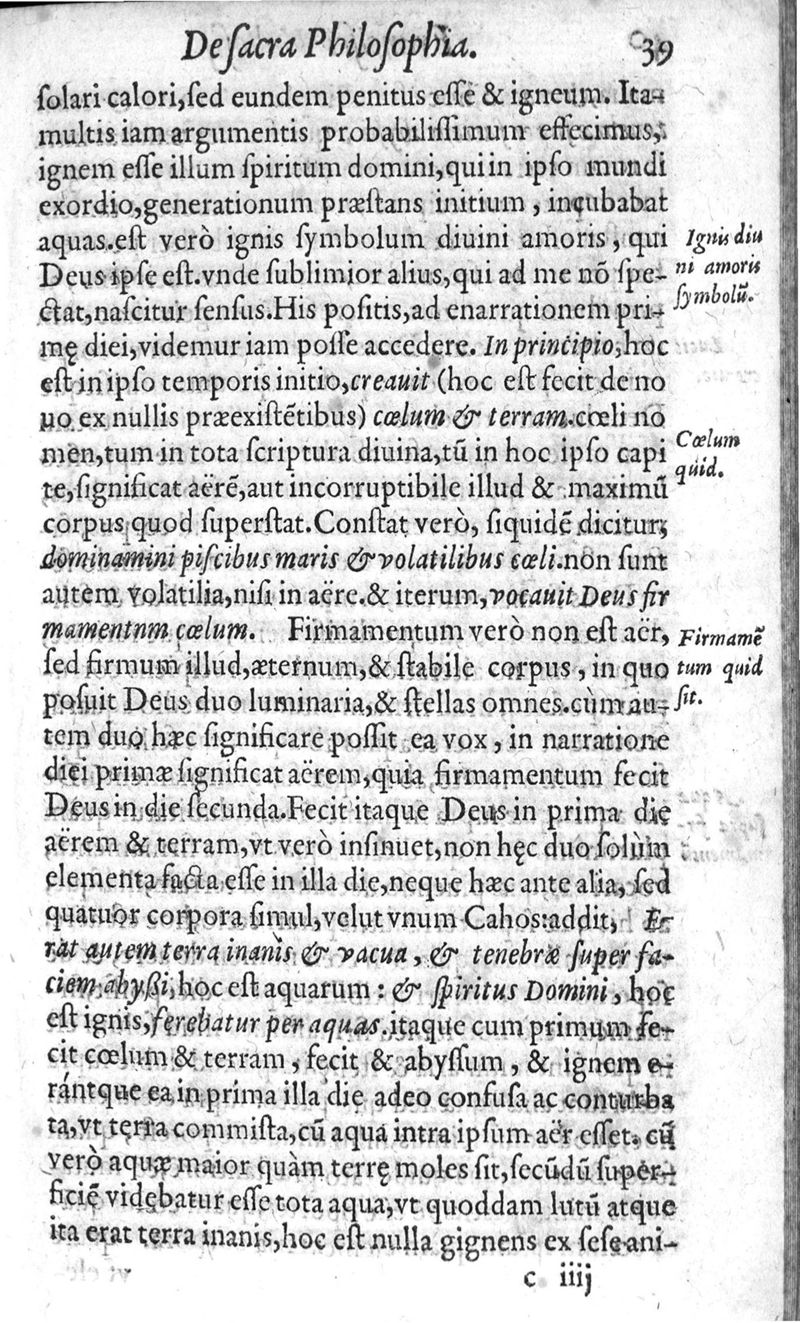 De sacra Philosophia. 39
ſolari calori,ſed eundem penitus eſſe & igneum. Ita-
multis iam argumentis probabiliſſimum effecimus,
ignem eſſe illum ſpiritum domini,qui in ipſo mundi
exordio,generationum præſtans initium , incubabat
aquas.eſt verò ignis ſymbolum diuini amoris , qui
Ignis diui
Deus ipſe eſt.vnde ſublimior alius,qui ad me nō ſpe-
ni amoris
ctat,naſcitur ſenſus.His poſitis,ad enarrationem pri-
ſymbolū.
mę diei,videmur iam poſſe accedere. In principio,hoc
eſt in ipſo temporis initio,creauit (hoc eſt fecit de no
uo ex nullis præexiſtētibus) cœlum & terram.cœli no
men,tum in tota ſcriptura diuina,tū in hoc ipſo capi
Cœlum
quid.
te,ſignificat aërē,aut incorruptibile illud & maximū
corpus quod ſuperſtat.Conſtat verò, ſiquidē dicitur;
dominamini piſcibus maris & volatilibus cœli.non ſunt
autem volatilia,niſi in aëre.& iterum,vocauit Deus fir
mamentnm cœlum. Firmamentum verò non eſt aër,
Firmamē
ſed firmum illud,æternum,& ſtabile corpus , in quo
tum quid
poſuit Deus duo luminaria,& ſtellas omnes.cùm au-
ſit.
tem duo hæc ſignificare poſſit ea vox , in narratione
diei primæ ſignificat aërem,quia firmamentum fecit
Deus in die ſecunda.Fecit itaque Deus in prima die
aërem & terram,vt verò inſinuet,non hęc duo ſolùm
elementa facta eſſe in illa die,neque hæc ante alia, ſed
quatuor corpora ſimul,velut vnum Cahos:addit, Er
rat autem terra inanis & vacua , & tenebræ ſuper fa-
ciem abyßi,hoc eſt aquarum : & ſpiritus Domini , hoc
eſt ignis,ferebatur per aquas.itaque cum primum fe-
cit cœlum & terram , fecit & abyſſum , & ignem e-
rántque ea in prima illa die adeo confuſa ac conturba
ta,vt terra commiſta,cū aqua intra ipſum aër eſſet. cū
verò aquæ maior quàm terrę moles ſit,ſecūdū ſuper-
ficiē videbatur eſſe tota aqua,vt quoddam lutū atque
ita erat terra inanis,hoc eſt nulla gignens ex ſeſe ani-
c iiij